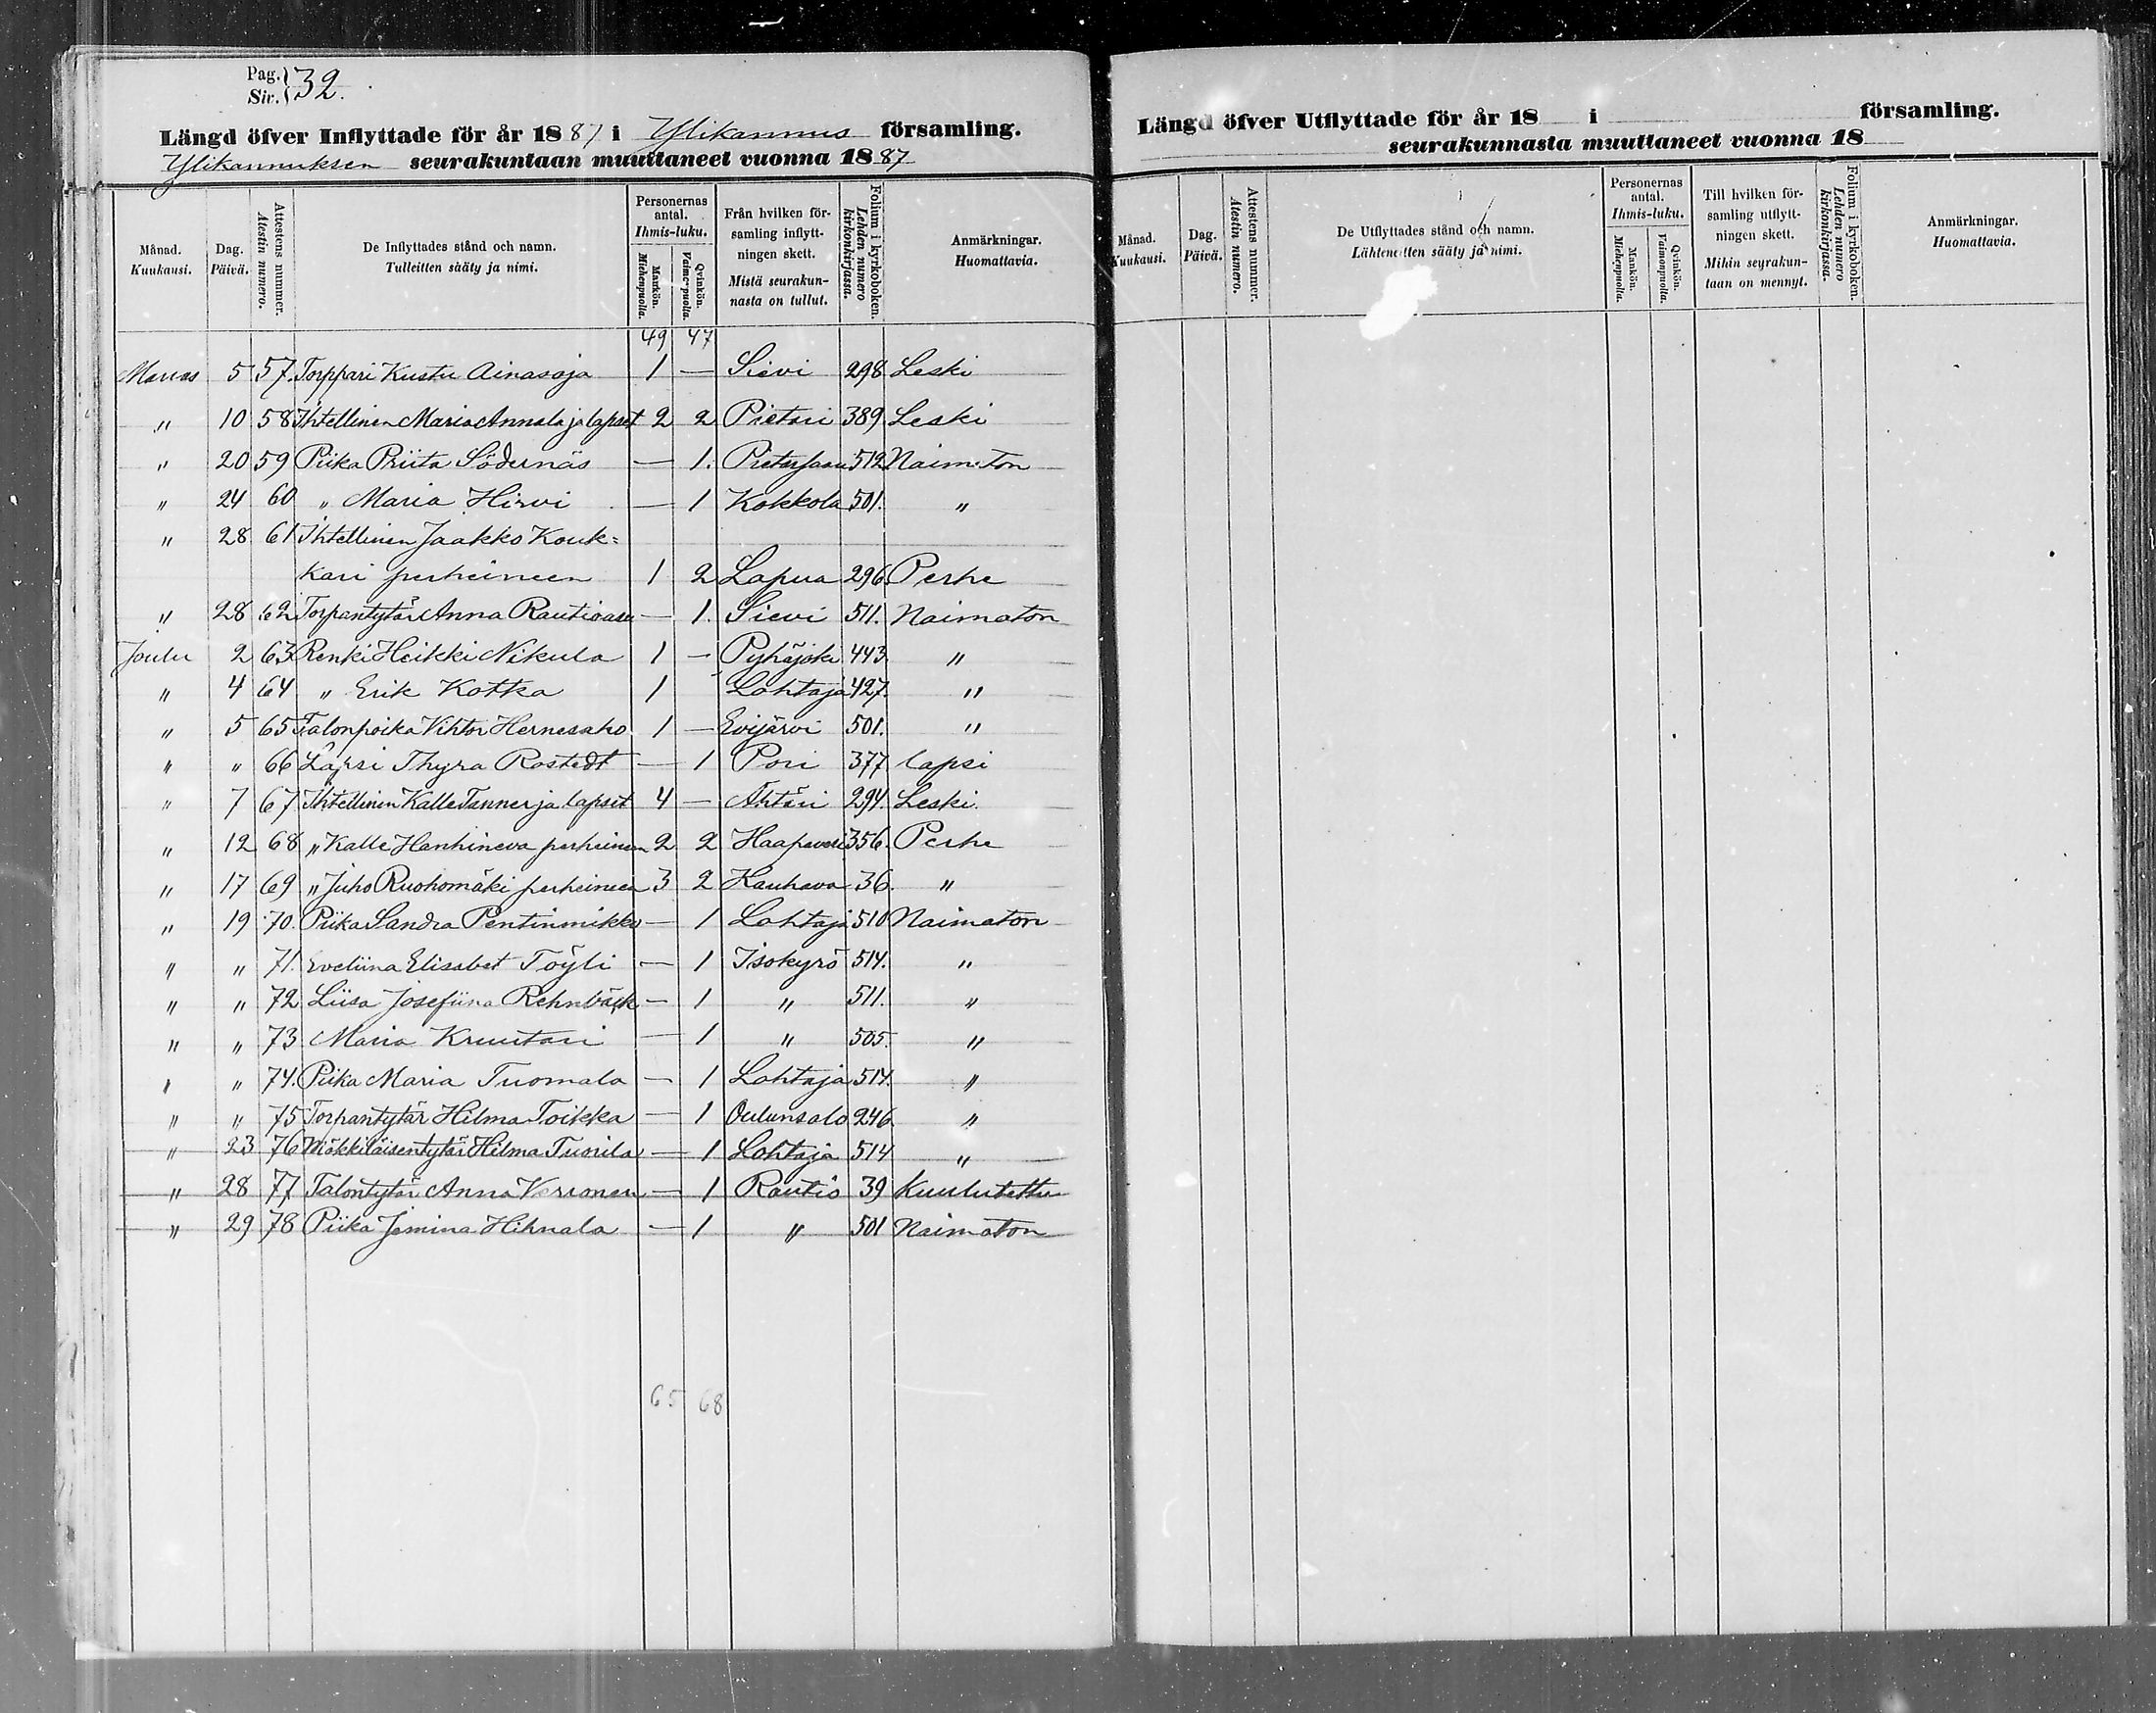 Pag. 32.
Siv.
Längd öfver Inflyttade för år 1887 i Ylikannus församling.
Ylikannuksen seurakuntaan muuttaneet vuonna 1887
Månad. Kuukausi. Dag. Päivä. Attestens nummer. Atestin numero. De Inflyttades stånd och namn. Tulleitten sääty ja nimi. Personernas antal. Ihmis-luku. Mankön. Miehenpuolia. Qvinkön. Vaimonpuolia. Från hvilken församling inflyttningen skett. Mistä seurakunnasta on tullut. Folium i kyrkoboken. Lehden numero kirkonkirjassa. Anmärkningar. Huomattavia.
49 47
Marras 5 57. Torppari Kustu Ainasoja 1 — Sievi 298 Leski
" 10 58 Ihtellinen Maria Annala ja lapset 2 2 Pietari 389. Leski
" 20 59 Piika Priita Södernäs — 1. Pietarsaari 512 Naimaton
" 24 60 " Maria Hirvi — 1 Kokkola 501. "
" 28 61 Ihtellinen Jaakko Kouk=
kari perheineen 1 2 Lapua 296. Perhe
" 28 62 Torpantytär Anna Rautioaso — 1. Sievi 511. Naimaton
Joulu 2 63 Renki Heikki Nikula 1 — Pyhäjoki 443. "
" 4 64 " Erik Kotka 1 Lohtaja 427. "
" 5 65 Talonpoika Vihtor Hernesaho 1 — Evijärvi 501. "
" " 66 Lapsi Thyra Rostedt — 1 Pori 377 lapsi
" 7 67 Ihtellinen Kalle Tanner ja lapset 4 — Ähtäri 294. Leski.
" 12 68 " Kalle Hanhineva perheineen 2 2 Haapavesi 356. Perhe
" 17 69 " Juho Ruohomäki perheineen 3 2 Kauhava 36. "
" 19 70. Piika Sandra Pentinmikko — 1 Lohtaja 510 Naimaton
" " 71. Eveliina Elisabet Töyli — 1 Isokyrö 514. "
" " 72 Liisa Josefiina Rehnbäck — 1 " 511. "
" " 73 Maria Kruutari — 1 " 505. "
" " 74. Piika Maria Tuomala — 1 Lohtaja 514. "
" " 75 Torpantytär Hilma Toikka — 1 Oulunsalo 246. "
" 23 76 Mäkkiläisentytär Hilma Tuorila — 1 Lohtaja 514 "
" 28 77 Talontytär Anna Verronen — 1 Rautio 39 Kuulutettu
" 29 78 Piika Jemina Hihnala — 1 " 501 Naimaton
65 68
Längd öfver Utflyttade för år 18 i församling.
seurakunnasta muuttaneet vuonna 18
Månad. Kuukausi. Dag. Päivä. Attestens nummer. Atestin numero. De Utflyttades stånd och namn. Lähteneitten sääty ja nimi. Personernas antal. Ihmis-luku. Mankön. Miehenpuolia. Qvinkön. Vaimonpuolia. Till hvilken församling utflyttningen skett. Mihin seurakuntaan on mennyt. Folium i kyrkoboken. Lehden numero kirkonkirjassa. Anmärkningar. Huomattavia.